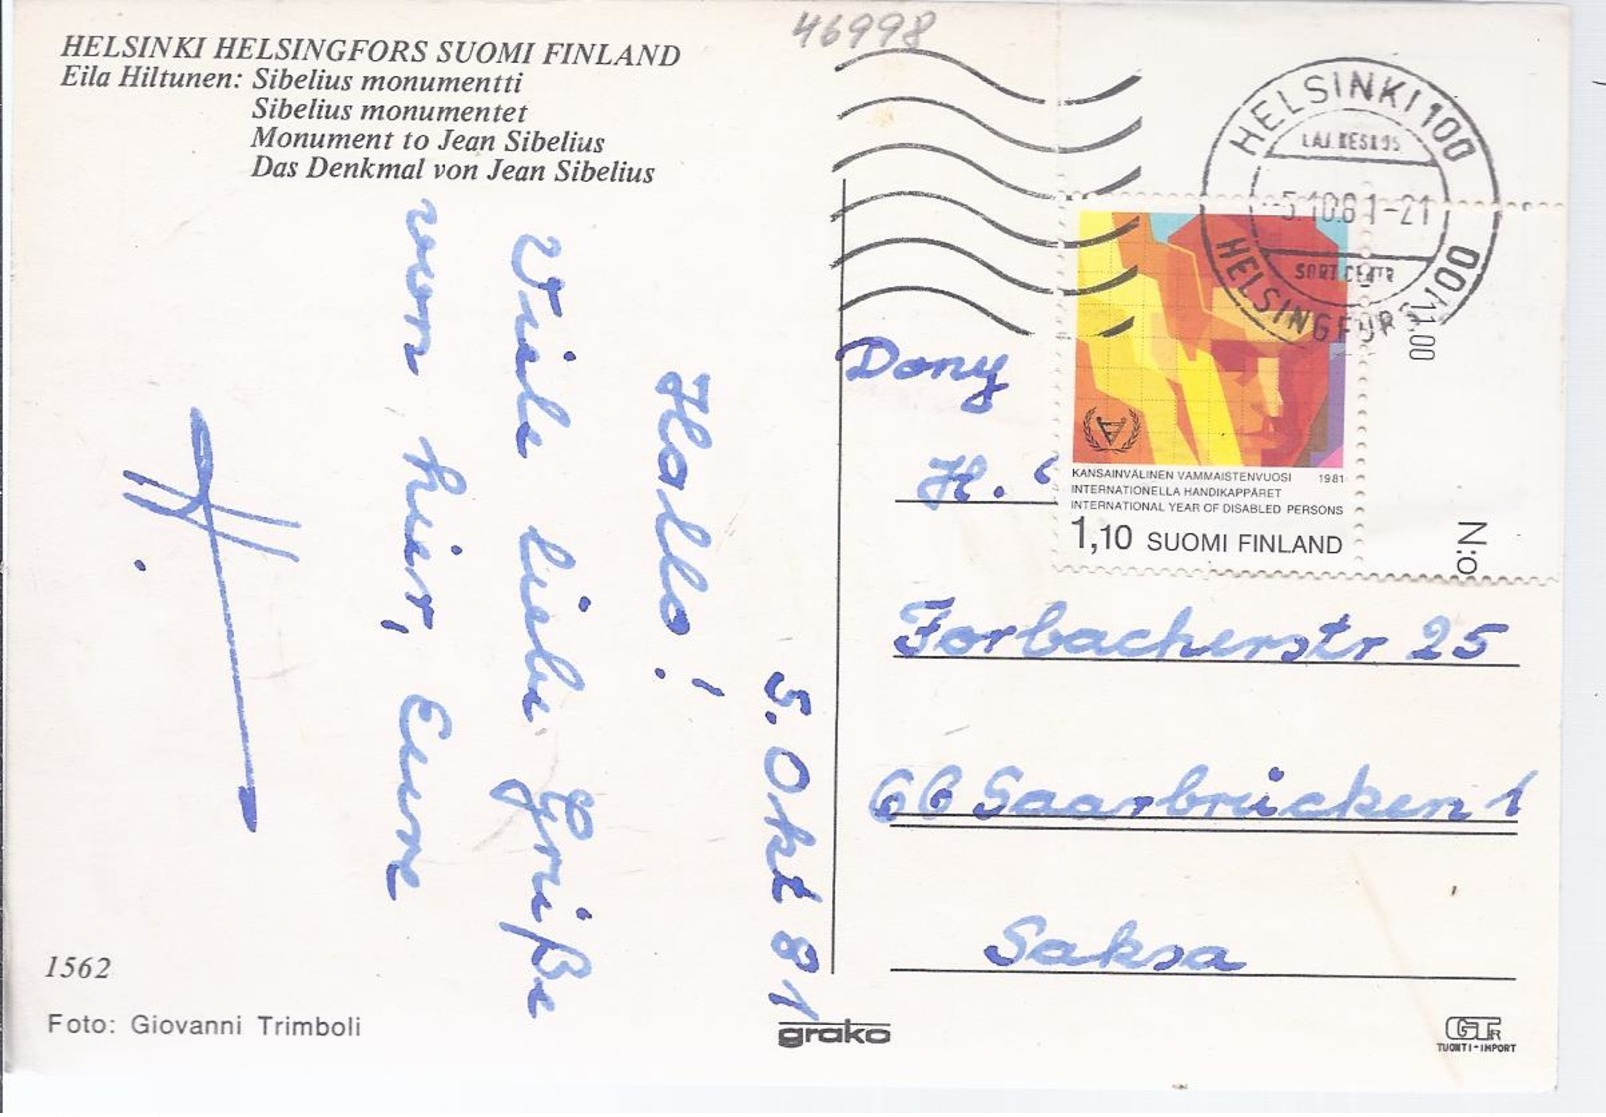 46998
HELSINKI HELSINGFORS SUOMI FINLAND
Eila Hiltunen: Sibelius monumentti
Sibelius monumentet
Monument to Jean Sibelius
Das Denkmal von Jean Sibelius
5. Okt 81
Hallo!
Viele liebe Grüße
von hier, Eure
H.
1562
Foto: Giovanni Trimboli
grako
HELSINKI 100
LAJ.KESKUS
-5.10.81-21
SORT.CENTR
HELSINGFORS 100
11.00
N:o
KANSAINVÄLINEN VAMMAISTENVUOSI 1981
INTERNATIONELLA HANDIKAPPÅRET
INTERNATIONAL YEAR OF DISABLED PERSONS
1,10 SUOMI FINLAND
Dony
H.
Forbacherstr 25
66 Saarbrücken 1
Saksa
GTR
TUONTI-IMPORT